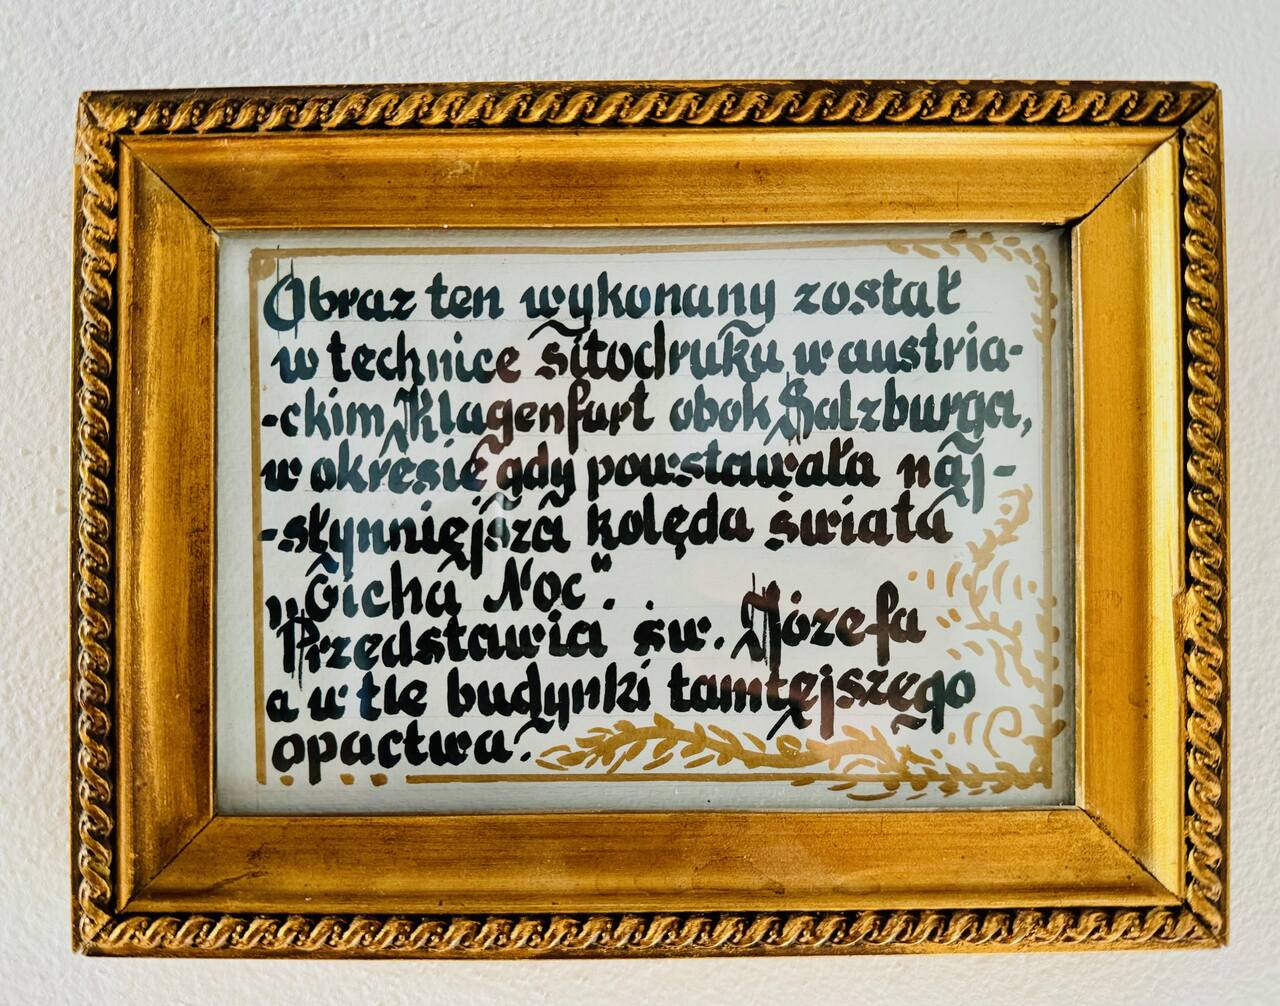 Obraz ten wykonany został
w technice sitodruku w austria-
-ckim Klagenfurt obok Salzburga,
w okresie gdy powstawała naj-
-słynniejsza kolęda świata
„Cicha Noc".
Przedstawia św. Józefa
a w tle budynki tamtejszego
opactwa.